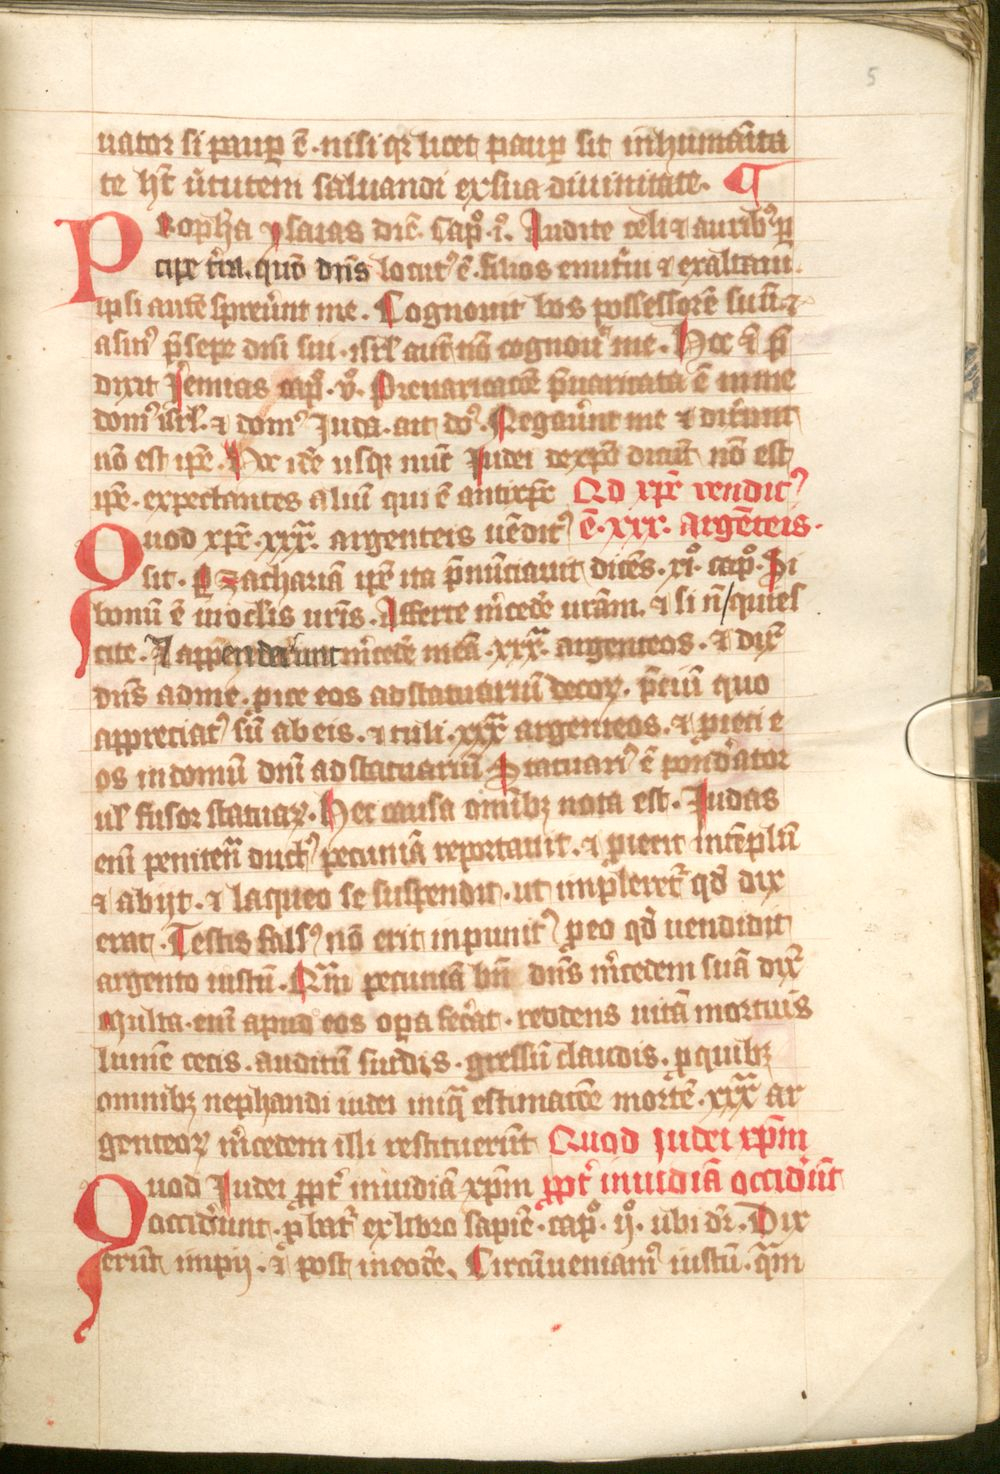 5
uator si paup ē. nisi qr licet paup sit inhumanita
te hꝫ ũtutem saluandi exsua diuinitate. ¶
Propħa ysaias dic̄. Capͦ. iͦ. Audite celi ⁊ auribꝰ ꝑ
cipe t̄ra. quō dn̄s locutꝰ ē. filios enutriui ⁊ exaltaui.
ipsi autē spreuer̄t me. Cognouit bos possessorē suū. ⁊
asinꝰ p̄sepe dn̄i sui. isrl̄ aut̄ nō cognouit me. Hoc ⁊ p̄
dixit Jemias capͦ. vͦ. Preuaricatōe p̄uaricata ē in me
domꝰ isrl̄. ⁊ domꝰ Juda. ait dn̄s. Negauer̄t me ⁊ dixer̄unt
nō est ipe. Hoc idē usqꝫ nūc Judei dexp̄o dicūt nō est
ipe. expectantes aliū qui ē antixp̄c Qd xp̄c venditꝰ
Quod xp̄c .xxx. argenteis uēditꝰ ē .xxx. argēteis.
sit. ꝑ zachariā ipe ita p̄nūciauit dicēs. xiͦ. capͦ. Si
bonū ē in oclis ur̄is. Afferte m̄cedē urām. ⁊ si n̄ / quies
cite. Et appenderunt m̄cedē meā .xxx. argenteos. ⁊ dix̄
dn̄s adme. p̄ice eos adstatuariū decoꝝ. p̄ciū quo
appreciatꝰ sū ab eis. ⁊ tuli .xxx. argenteos. ⁊ p̄ieci e
os indomū dn̄i adstatuariū Statuariꝰ ē pond̄ator
ul̄ fusor statuaꝝ. Hec causa omībꝫ nota est. Judas
eni penitēn̄ ductꝰ pecuniā reportauit. ⁊ ꝓiecit intēplū
⁊ abijt. ⁊ laqueo se suspendit. ut impleret̄ qd̄ dix
erat. Testis falsꝰ nō erit inpunitꝰ ꝑeo qd̄ uendidit
argento iustū. Qm̄ pecuniā hn̄i dn̄s m̄cedem suā dix̄
Multa. eni apud eos oꝑa fec̄at. reddens uitā mortuis
lumē cecis. auditū surdis. gressū claudis. ꝓquibꝫ
omnibꝫ nephandi iudei iniq̄ estimatōe mortē .xxx. ar
genteoꝝ m̄cedem illi restituerūt Quod Judei xp̄m
Quod Judei ꝓpt̄ inuidiā xp̄m ꝓpt̄ inuidiā occider̄ūt
occider̄unt. ꝓbat̄ ex libro sapiē. capͦ. ijͦ. ubi dr̄. Dix
erūt impij. ⁊ post in eodē. Circūueniamꝰ iustū. qm̄